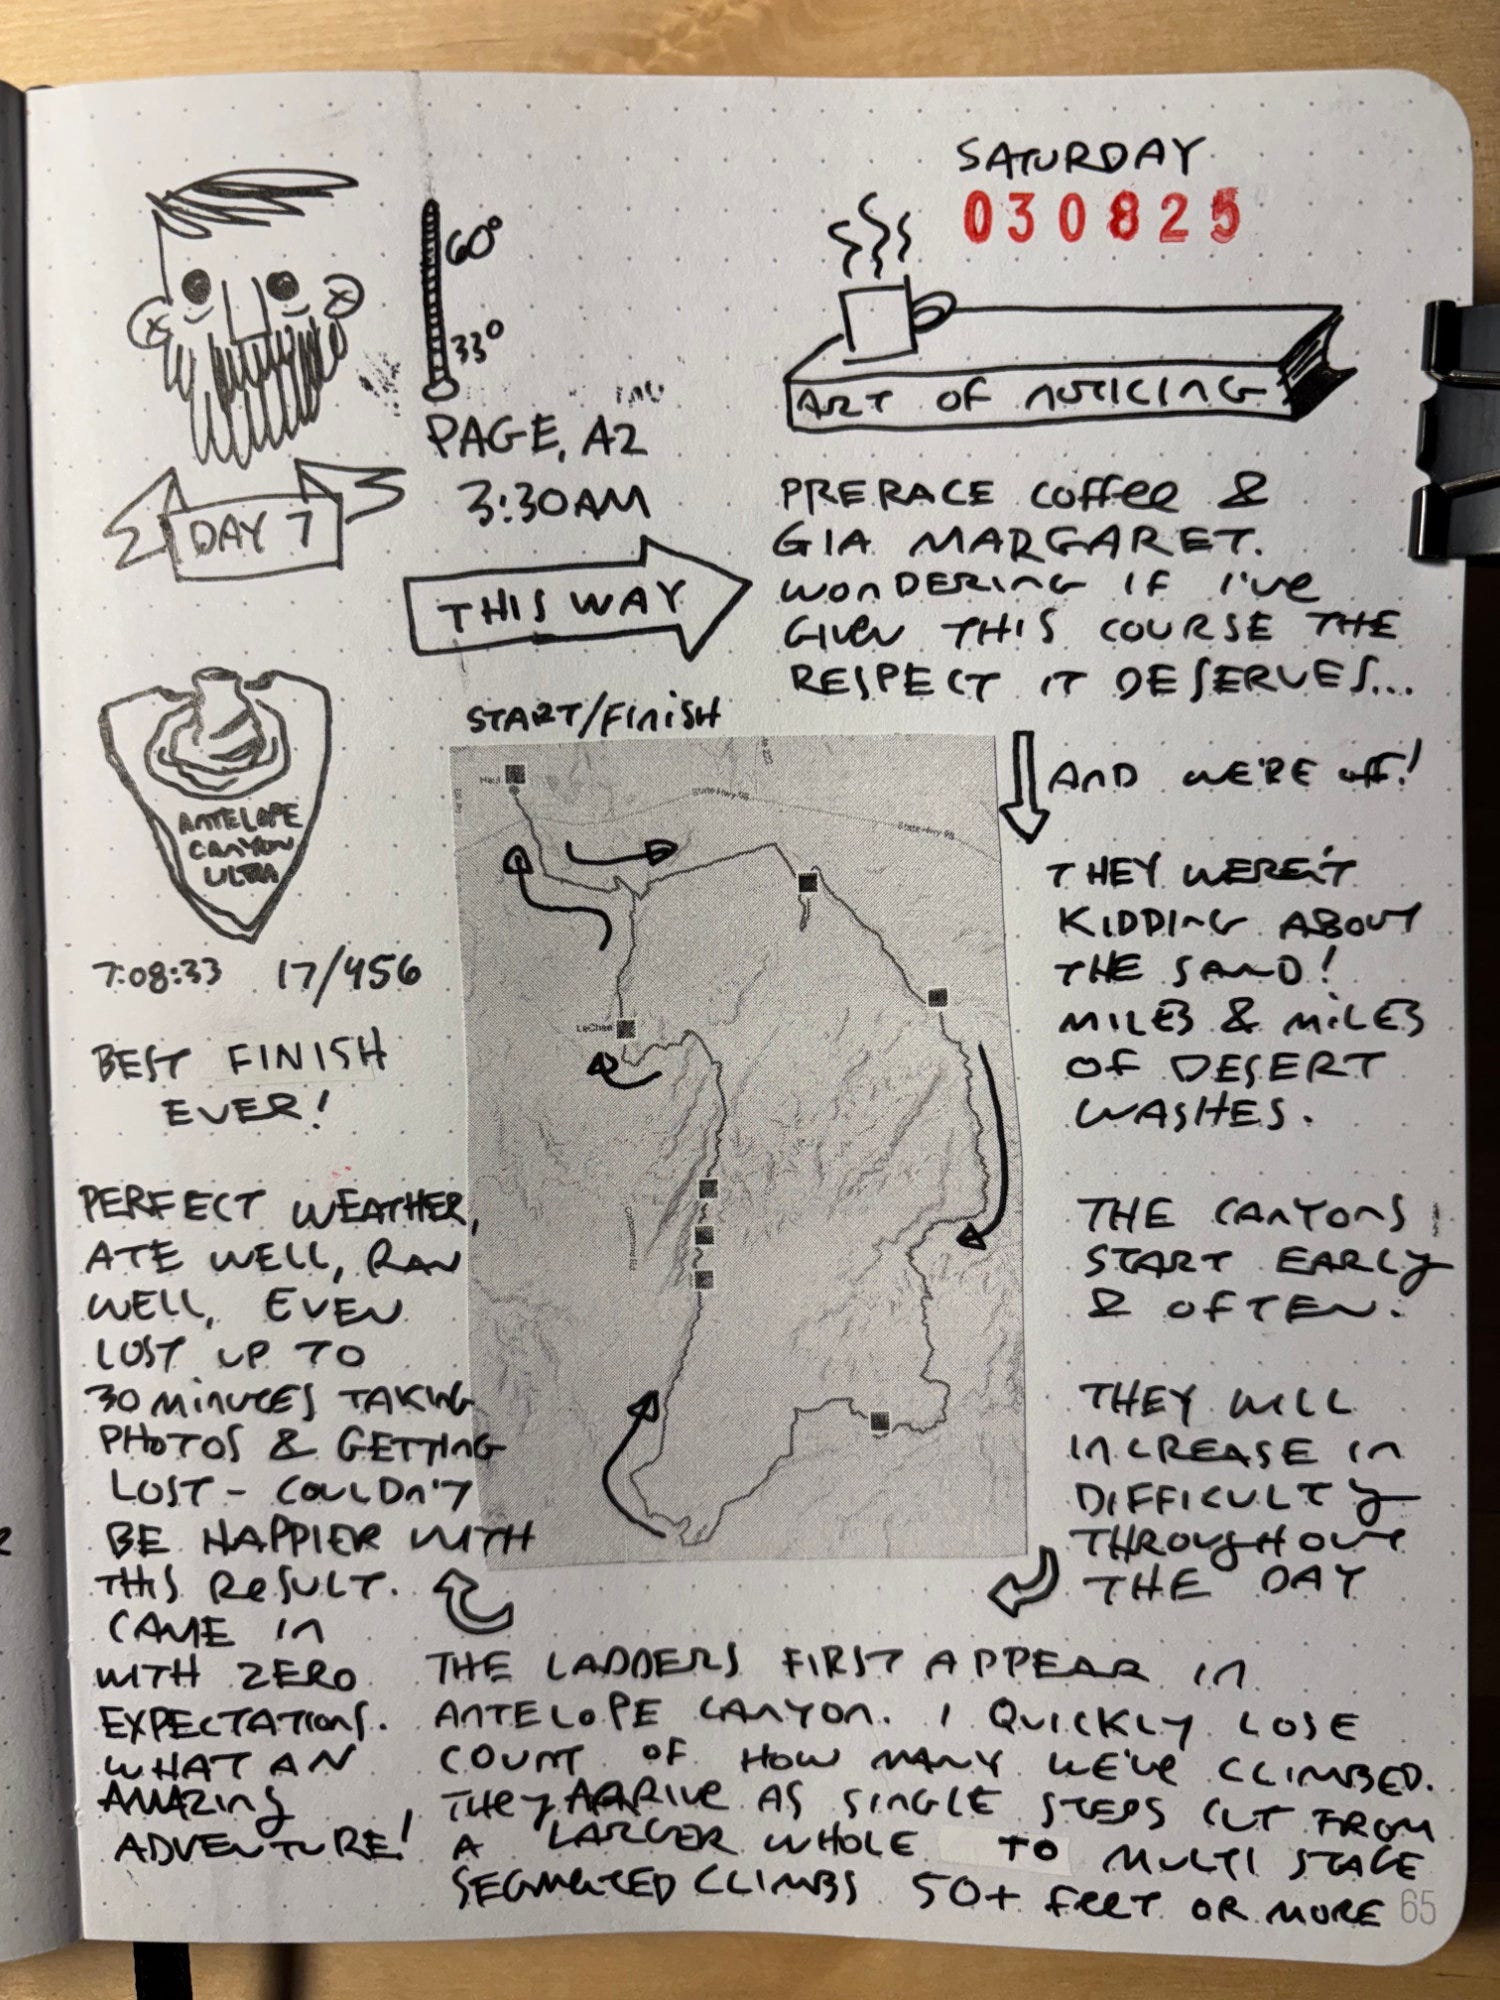 SATURDAY
030825
60°
33°
PAGE, AZ
3:30AM
DAY 7
THIS WAY
ART OF NOTICING
PRERACE COFFEE &
GIA MARGARET.
WONDERING IF I'VE
GIVEN THIS COURSE THE
RESPECT IT DESERVES...
START/FINISH
AND WE'RE OFF!
THEY WEREN'T
KIDDING ABOUT
THE SAND!
MILES & MILES
OF DESERT
WASHES.
THE CANYONS
START EARLY
& OFTEN.
THEY WILL
INCREASE IN
DIFFICULTY
THROUGHOUT
THE DAY
State Hwy 98
State Hwy 98
LeChee
THE LADDERS FIRST APPEAR IN
ANTELOPE CANYON. I QUICKLY LOSE
COUNT OF HOW MANY WE'VE CLIMBED.
THEY ARRIVE AS SINGLE STEPS CUT FROM
A LARGER WHOLE TO MULTI STAGE
SEGMENTED CLIMBS 50+ FEET OR MORE
ANTELOPE
CANYON
ULTRA
7:08:33 17/456
BEST FINISH
EVER!
PERFECT WEATHER,
ATE WELL, RAN
WELL, EVEN
LOST UP TO
30 MINUTES TAKING
PHOTOS & GETTING
LOST - COULDN'T
BE HAPPIER WITH
THIS RESULT.
CAME IN
WITH ZERO
EXPECTATIONS.
WHAT AN
AMAZING
ADVENTURE!
65